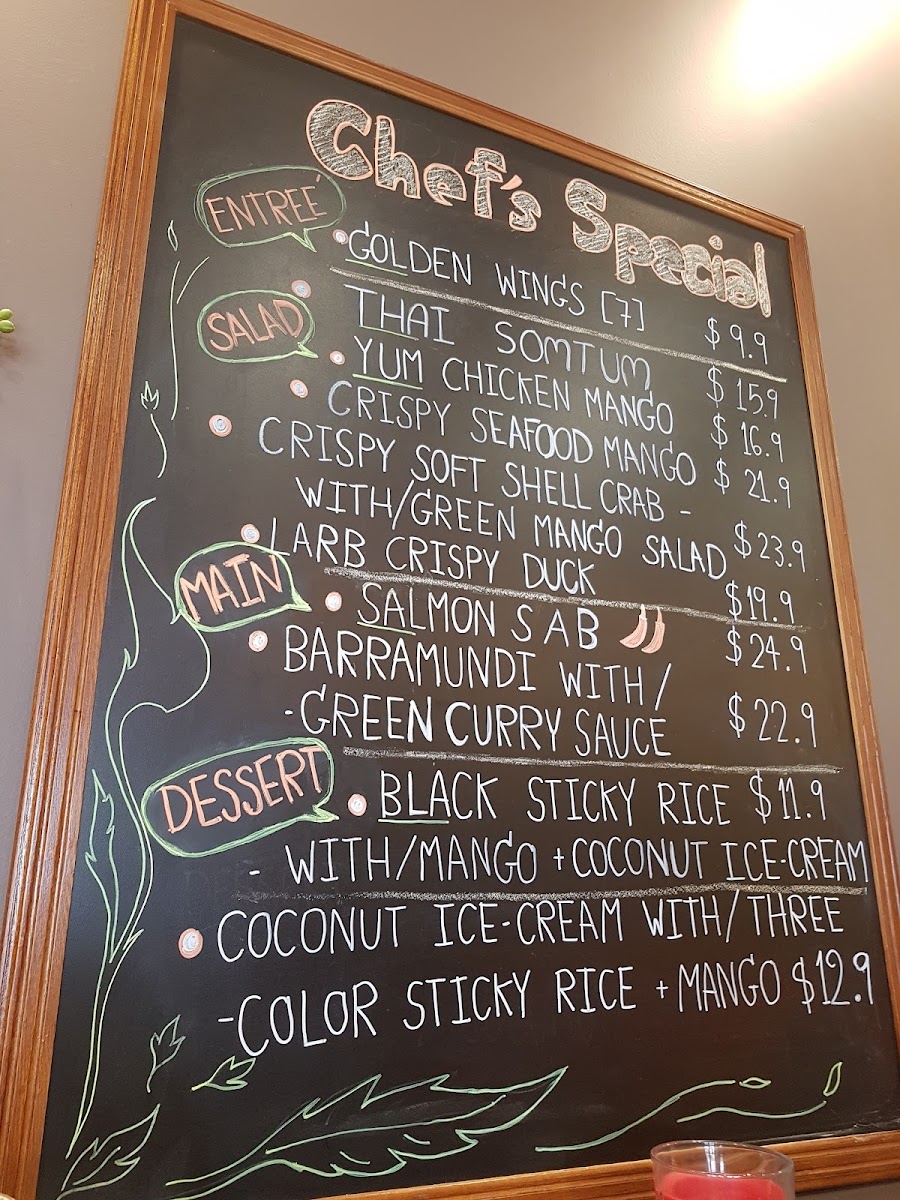 Chef's Special
ENTREÉ
GOLDEN WINGS [7] $9.9
SALAD
THAI SOMTUM $15.9
YUM CHICKEN MANGO $16.9
CRISPY SEAFOOD MANGO $21.9
CRISPY SOFT SHELL CRAB -
WITH/GREEN MANGO SALAD $23.9
LARB CRISPY DUCK $19.9
MAIN
SALMON SAB $24.9
BARRAMUNDI WITH/
-GREEN CURRY SAUCE $22.9
DESSERT
BLACK STICKY RICE $11.9
- WITH/MANGO + COCONUT ICE-CREAM
COCONUT ICE-CREAM WITH/THREE
-COLOR STICKY RICE + MANGO $12.9